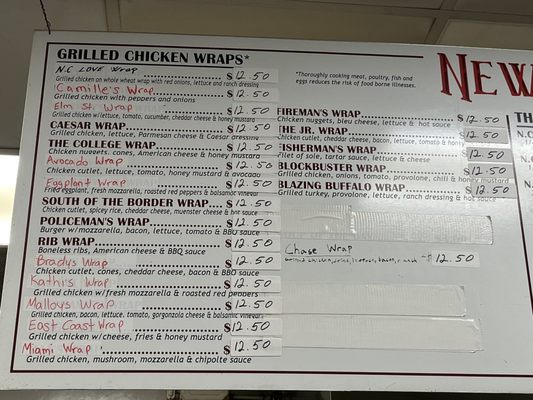 GRILLED CHICKEN WRAPS*
N.C LOVE Wrap $12.50
Grilled chicken on whole wheat wrap with red onions, lettuce and ranch dressing
Camille's Wrap $12.50
Grilled chicken with peppers and onions
Elm St. Wrap $12.50
Grilled chicken w/lettuce, tomato, cucumber, cheddar cheese & honey mustard
CAESAR WRAP $12.50
Grilled chicken, lettuce, Parmesan cheese & Caesar dressing
THE COLLEGE WRAP $12.50
Chicken nuggets, cones, American cheese & honey mustard
Avocado Wrap $12.50
Chicken cutlet, lettuce, tomato, honey mustard & avocado
Eggplant Wrap $12.50
Fried eggplant, fresh mozzarella, roasted red peppers & balsamic vinegar
SOUTH OF THE BORDER WRAP $12.50
Chicken cutlet, spicey rice, cheddar cheese, muenster cheese & hot sauce
POLICEMAN'S WRAP $12.50
Burger w/mozzarella, bacon, lettuce, tomato & BBQ sauce
RIB WRAP $12.50
Boneless ribs, American cheese & BBQ sauce
Bradys Wrap $12.50
Chicken cutlet, cones, cheddar cheese, bacon & BBQ sauce
Kathi's Wrap $12.50
Grilled chicken w/fresh mozzarella & roasted red peppers
Malloys Wrap $12.50
Grilled chicken, bacon, lettuce, tomato, gorgonzola cheese & balsamic vinegar
East Coast Wrap $12.50
Grilled chicken w/cheese, fries & honey mustard
Miami Wrap $12.50
Grilled chicken, mushroom, mozzarella & chipolte sauce
*Thoroughly cooking meat, poultry, fish and
eggs reduces the risk of food borne illnesses.
FIREMAN'S WRAP $12.50
Chicken nuggets, bleu cheese, lettuce & hot sauce
THE JR. WRAP $12.50
Chicken cutlet, cheddar cheese, bacon, lettuce, tomato & honey
FISHERMAN'S WRAP $12.50
Filet of sole, tartar sauce, lettuce & cheese
BLOCKBUSTER WRAP $12.50
Grilled chicken, onions, tomato, provolone, chili & honey mustard
BLAZING BUFFALO WRAP $12.50
Grilled turkey, provolone, lettuce, ranch dressing & hot sauce
Chase Wrap
12.50
NEW
TH
N.C
N.